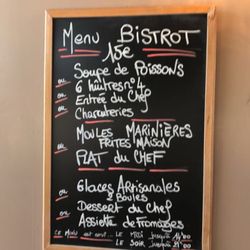 Menu BISTROT
15€
Soupe de Poissons
ou 6 huîtres n°4
ou Entrée du Chef
ou Charcuteries
Moules Marinières
Frites Maison
ou Plat du Chef
Glaces Artisanales
2 Boules
ou Dessert du Chef
ou Assiette de Fromages
Le Menu est servi... Le Midi jusqu'à 14h00
Le Soir jusqu'à 21h00